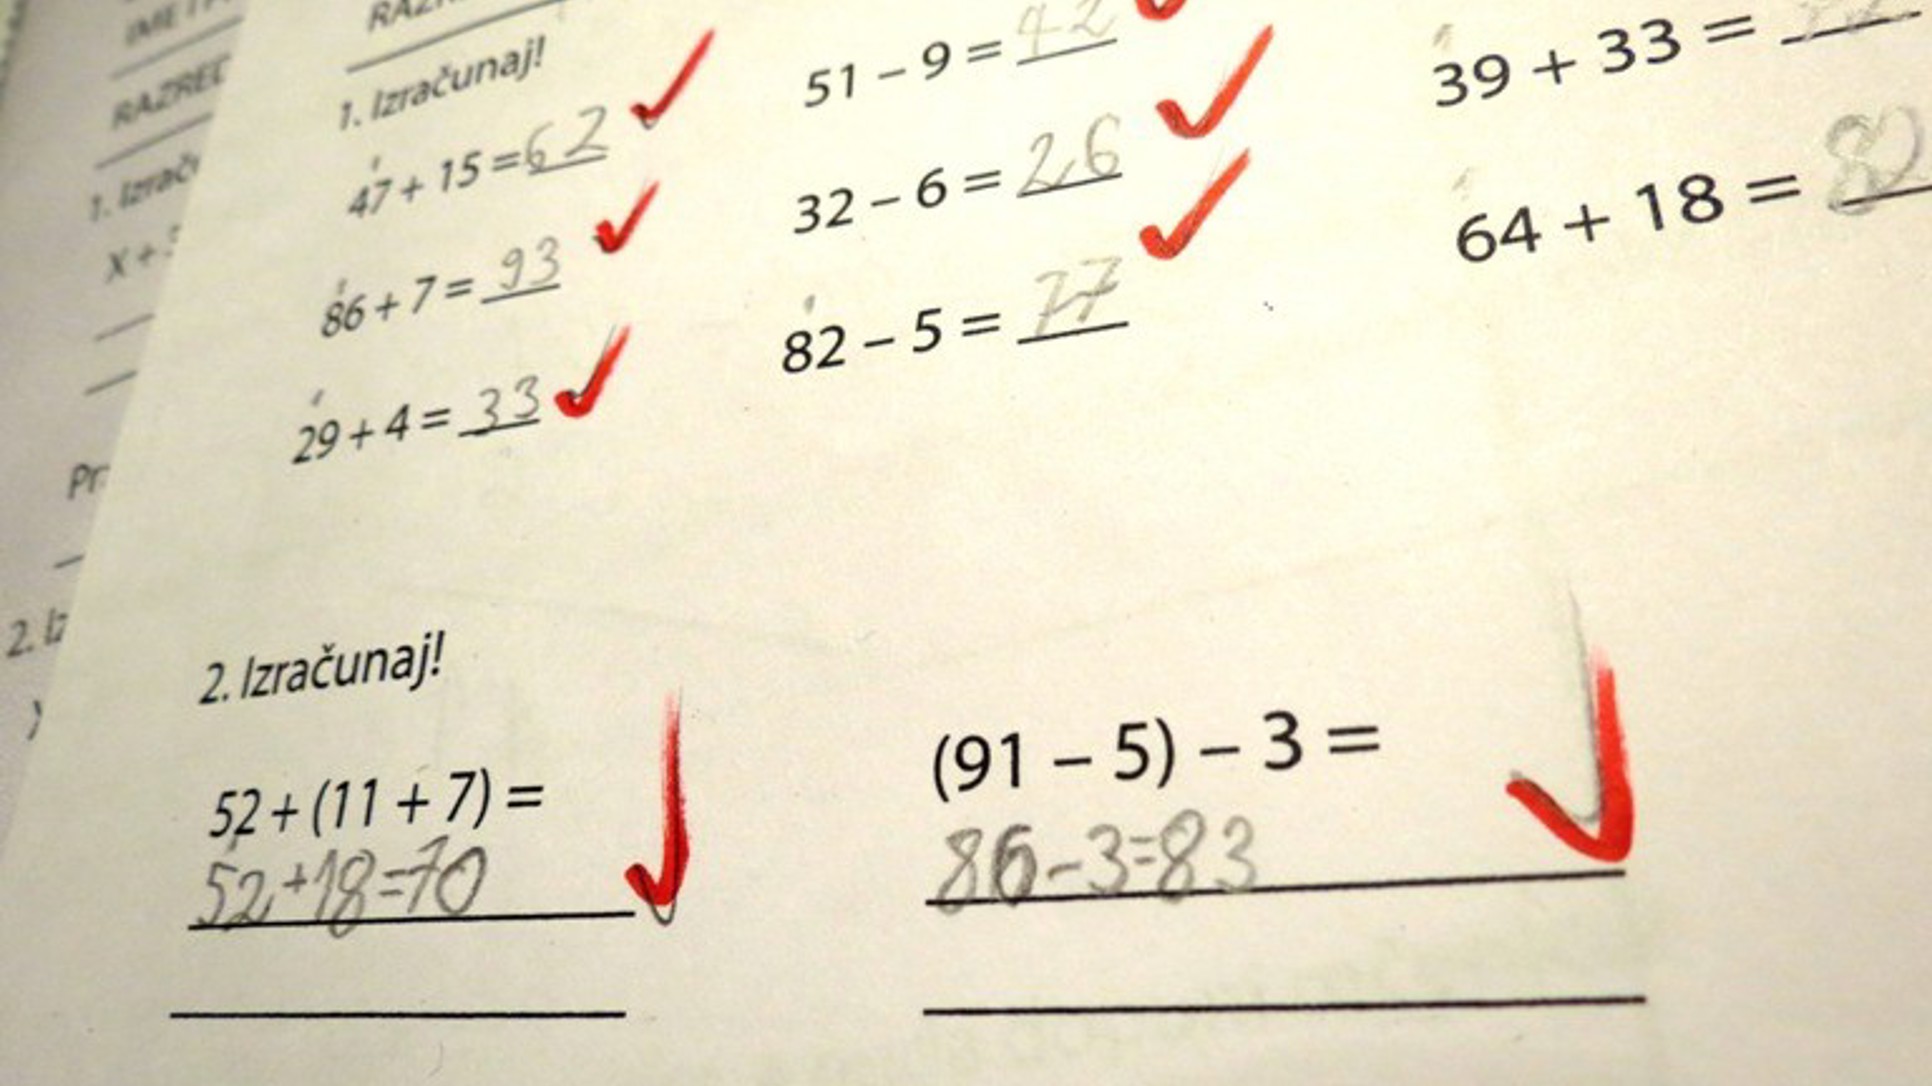 IME I
RAZRED
1. Izrač
X +
Pr
2. Iz
RAZR
1. Izračunaj!
47 + 15 = 62
86 + 7 = 93
29 + 4 = 33
51 – 9 = 42
32 – 6 = 26
82 – 5 = 77
39 + 33 =
64 + 18 = 82
2. Izračunaj!
52 + (11 + 7) =
52+18=70
(91 – 5) – 3 =
86-3=83